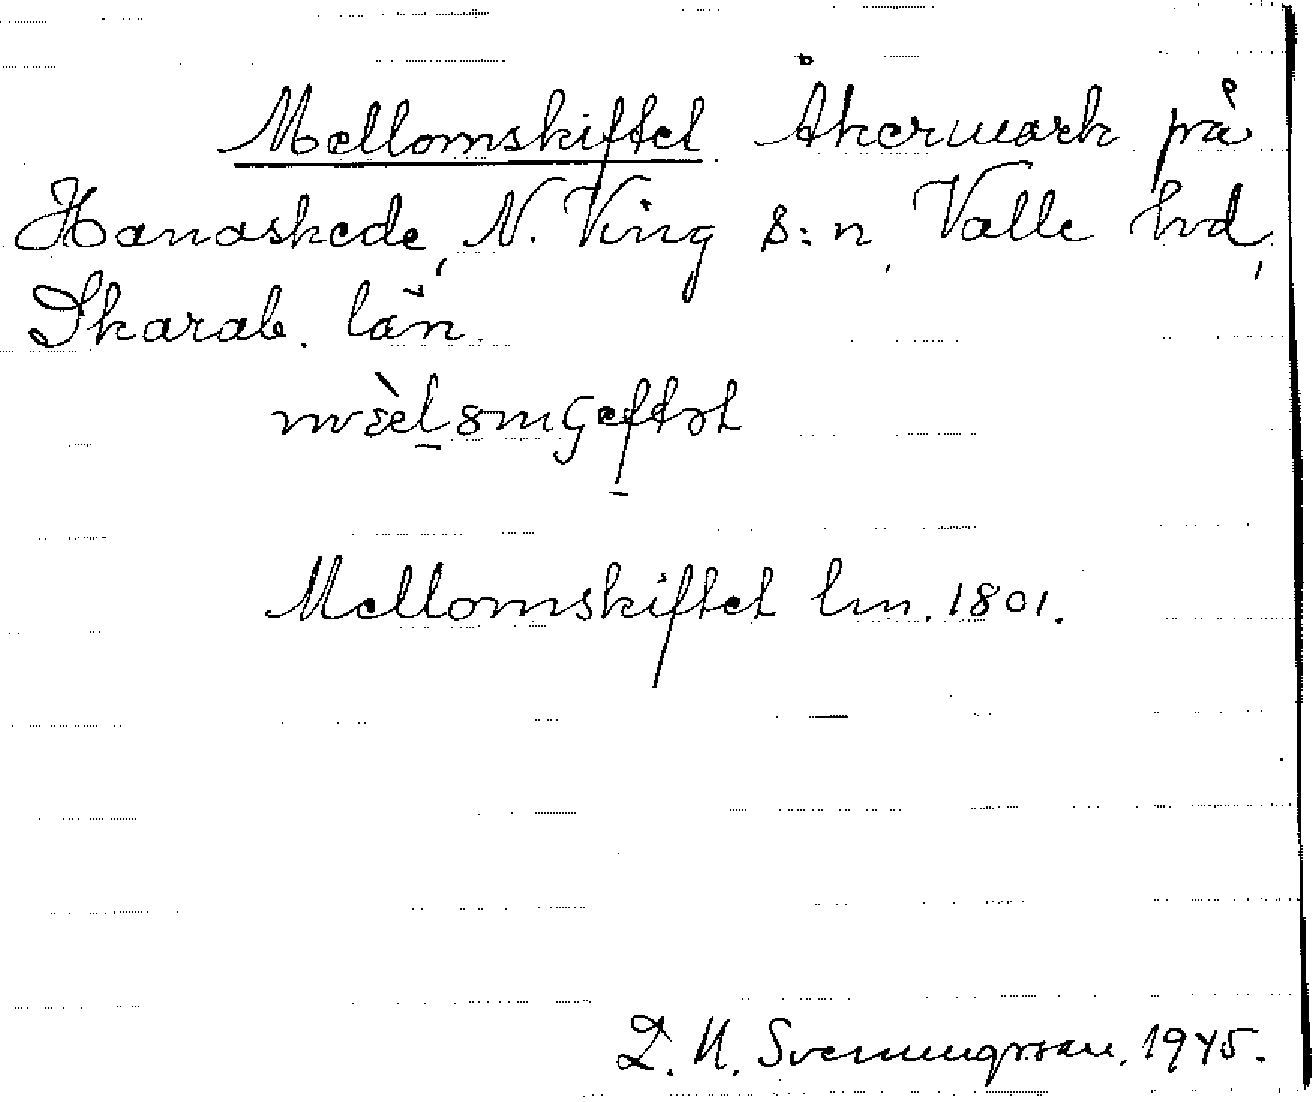 Mellomskiftet. Åkermark på
Hanaskede, N. Ving s:n, Valle hd,
Skarab. län.
Mellomskiftet lm. 1801.
D. N. Svenungsson. 1945.